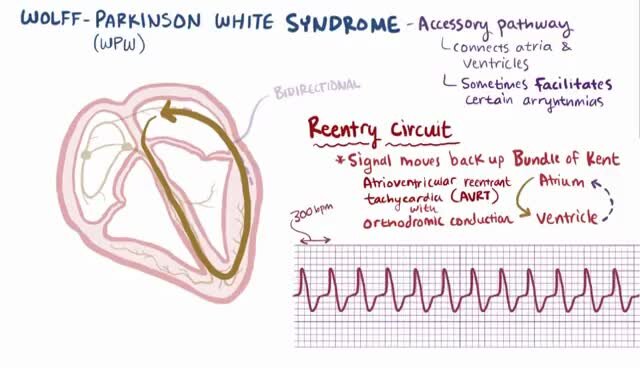 WOLFF-PARKINSON WHITE SYNDROME - Accessory pathway
(WPW)
connects atria &
ventricles
Sometimes facilitates
certain arryhthmias
BIDIRECTIONAL
Reentry Circuit
*Signal moves back up Bundle of Kent
Atrioventricular reentrant
tachycardia (AVRT)
with
orthodromic conduction
Atrium
Ventricle
300 bpm